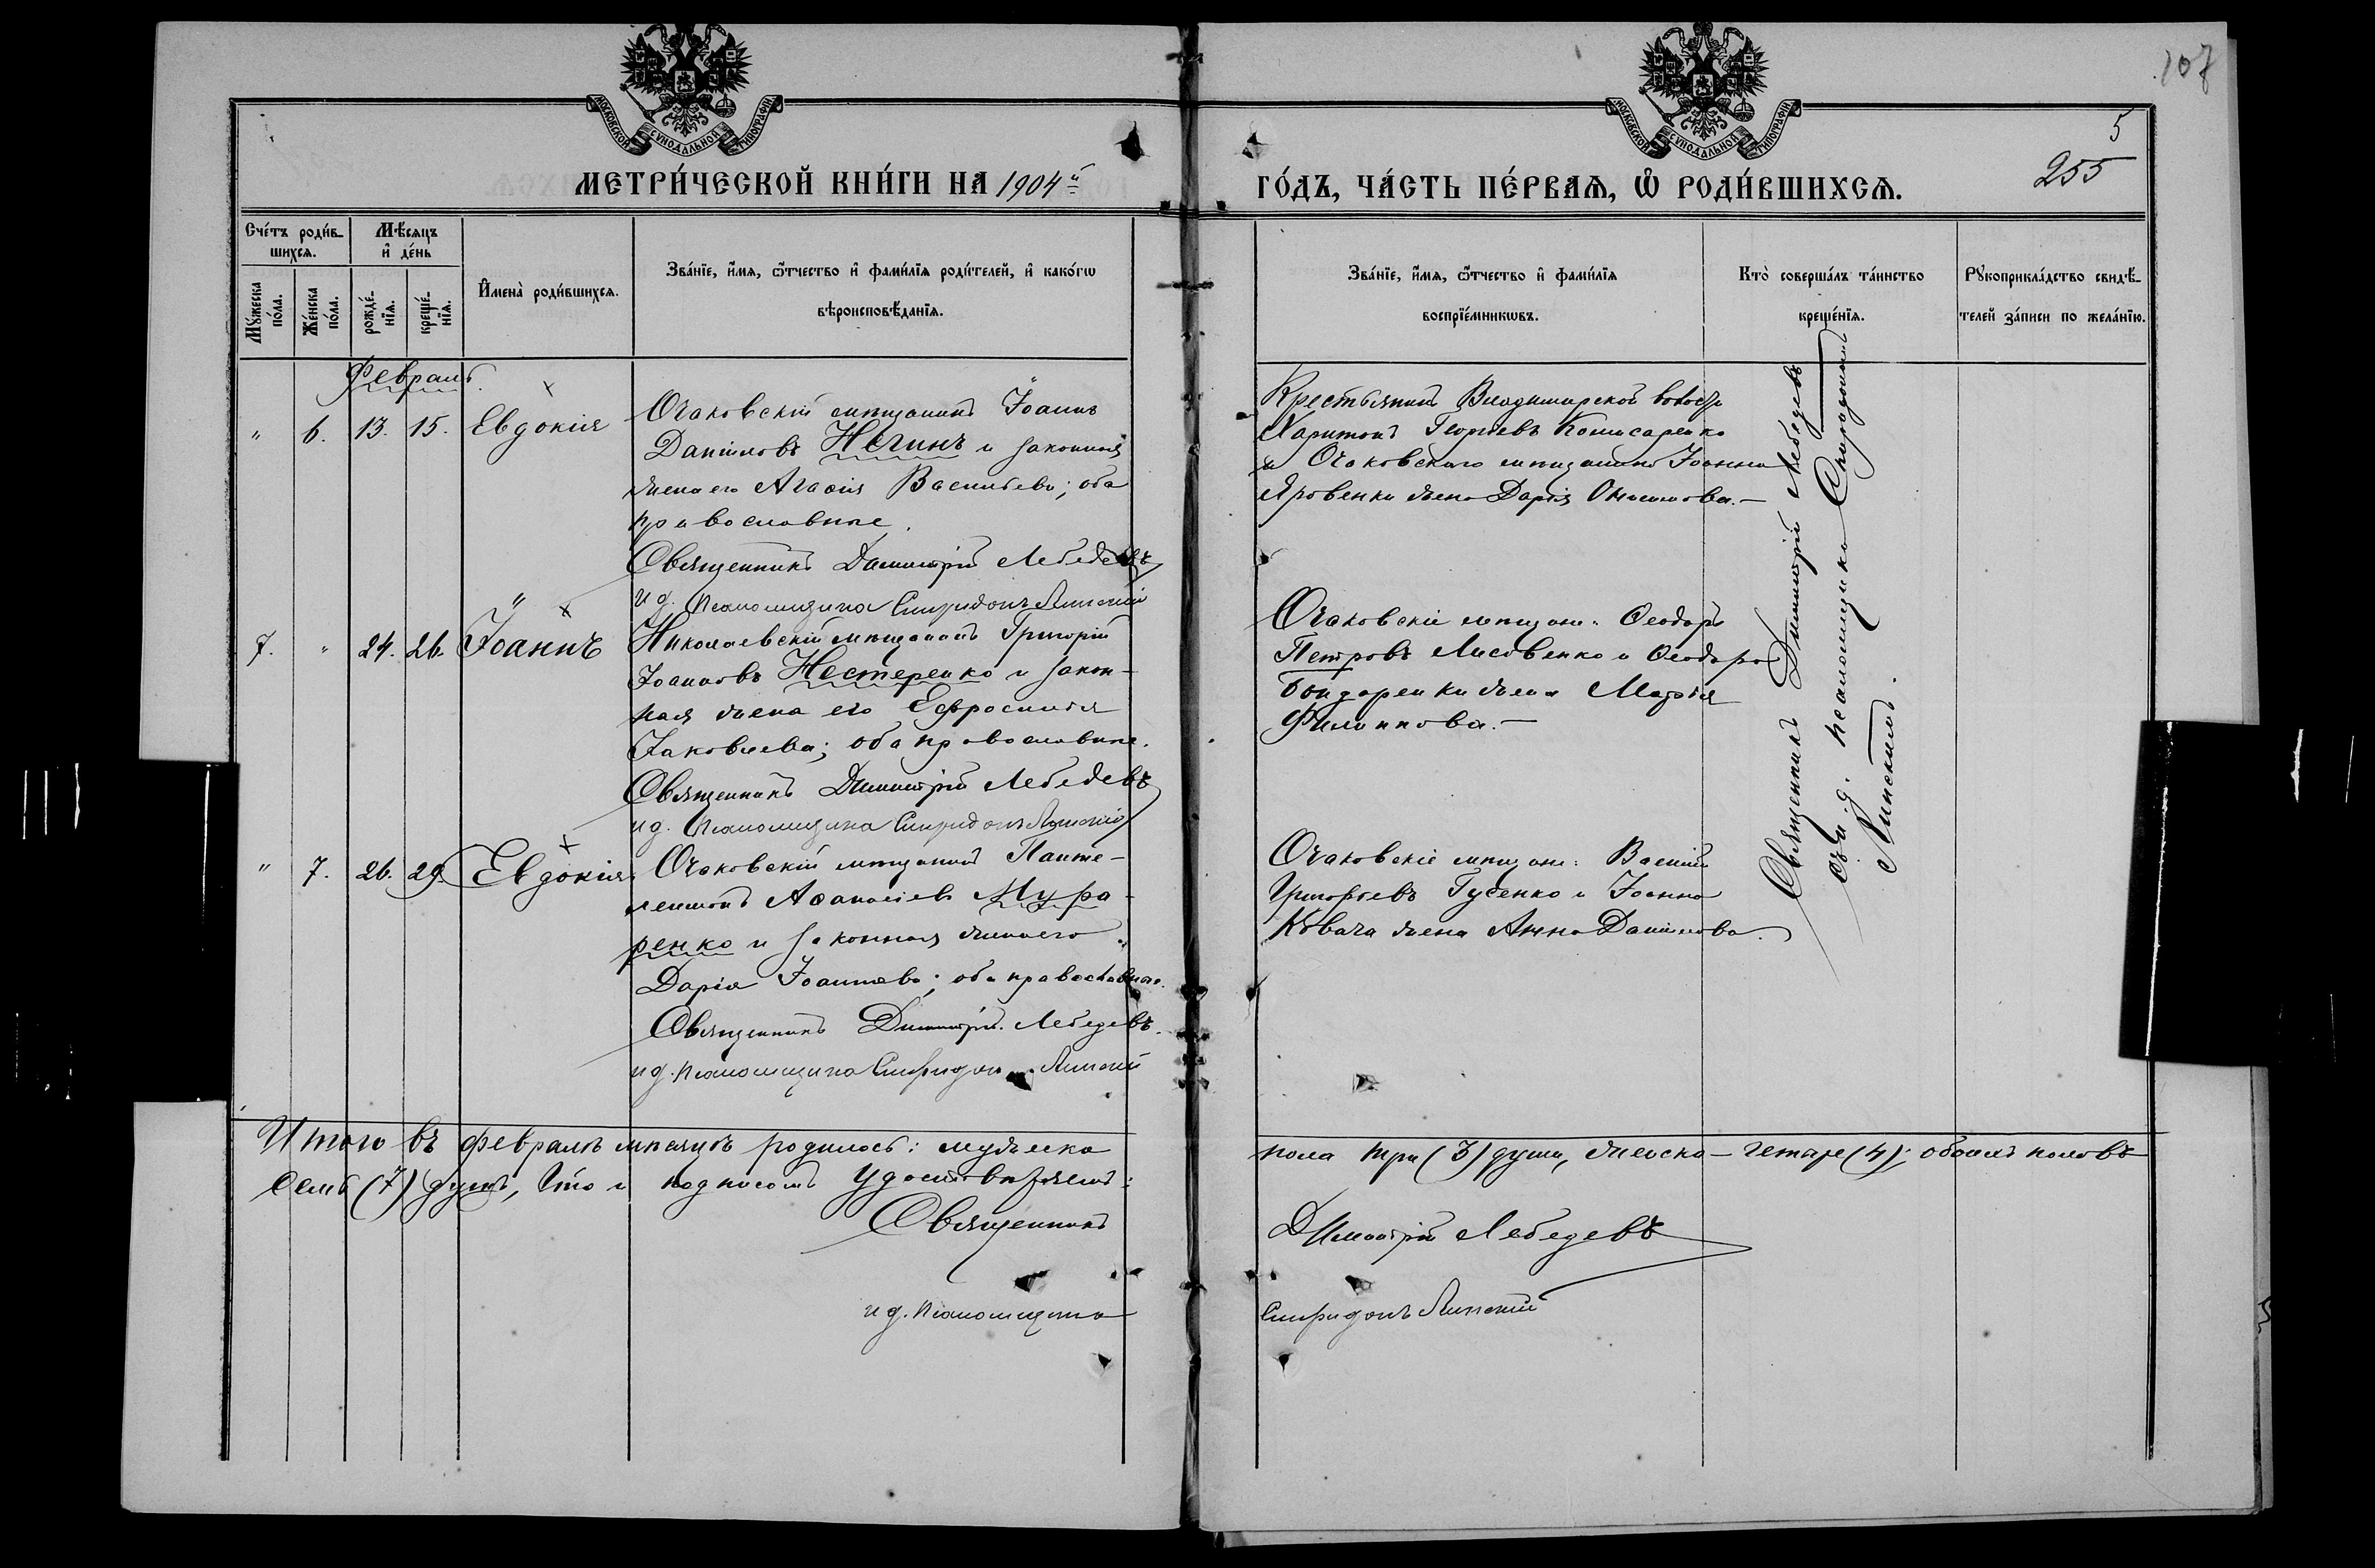 107
5
255
МОСКОВСКОЙ СѴНОДАЛЬНОЙ ТИПОГРАФІИ
МОСКОВСКОЙ СѴНОДАЛЬНОЙ ТИПОГРАФІИ
МЕТРИ́ЧЕСКОЙ КНИ́ГИ НА 1904й
ГО́ДЪ, ЧА́СТЬ ПЕ́РВАѦ, Ѽ РОДИ́ВШИХСѦ.
Сче́тъ роди́в-
шихсѧ.
Мѣ́сяцъ
и҆ де́нь
Мꙋ́жеска
по́ла.
Же́нска
по́ла.
рожде́-
нїѧ.
креще́-
нїѧ.
И҆мена̀ роди́вшихсѧ.
Зва́нїе, и҆́мѧ, ѻ҆́тчество и҆ фами́лїѧ роди́телей, и҆ како́гѡ
вѣроисповѣ́данїѧ.
Зва́нїе, и҆́мѧ, ѻ҆́тчество и҆ фами́лїѧ
воспрїе́мникѡвъ.
Кто̀ соверша́лъ та́инство
креще́нїѧ.
Рꙋкоприкла́дство свидѣ́-
телей за́писи по жела́нїю.
Февраль.
" 6. 13. 15. Евдокія
Очаковскій мѣщанинъ Іоаннъ
Даніиловъ Негинъ и законная
жена его Агаѳія Васильева; оба
православные.
Священникъ Димитрій Лебедевъ
и д. псаломщика Спиридонъ Липскій
Крестьянинъ Владимирской волости
Харитонъ Георгіевъ Комисаренко
и Очаковскаго мѣщанина Іоанна
Яровенки жена Дарія Онисимова.—
7. " 24. 26. Іоаннъ
Николаевскій мѣщанинъ Григорій
Іоанновъ Нестеренко и закон-
ная жена его Ефросинія
Іаковлева; оба православные.
Священникъ Димитрій Лебедевъ
и д. псаломщика Спиридонъ Липскій
Очаковскіе мѣщане: Ѳеодоръ
Петровъ Лисовенко и Ѳеодора
Бондаренки жена Марѳія
Филиппова.—
" 7. 26. 29. Евдокія.
Очаковскій мѣщанинъ Панте-
леимонъ Аѳанасіевъ Мура-
ренко и законная жена его
Дарія Іоаннова; оба православные.
Священникъ Димитрій Лебедевъ.
и д. псаломщика Спиридонъ Липскій
Очаковскіе мѣщане: Василій
Григорьевъ Гусенко и Іоанна
Ковача жена Анна Даніилова.
Священникъ Димитрій Лебедевъ
съ и. д. псаломщика Спиридономъ
Липскимъ.
Итого въ февралѣ мѣсяцѣ родилось: мужеска
пола три (3) души, женска — четыре (4); обоихъ половъ
семь (7) душъ, что и подписомъ удостовѣряемъ:
Священникъ Димитрій Лебедевъ
и д. псаломщика Спиридонъ Липскій